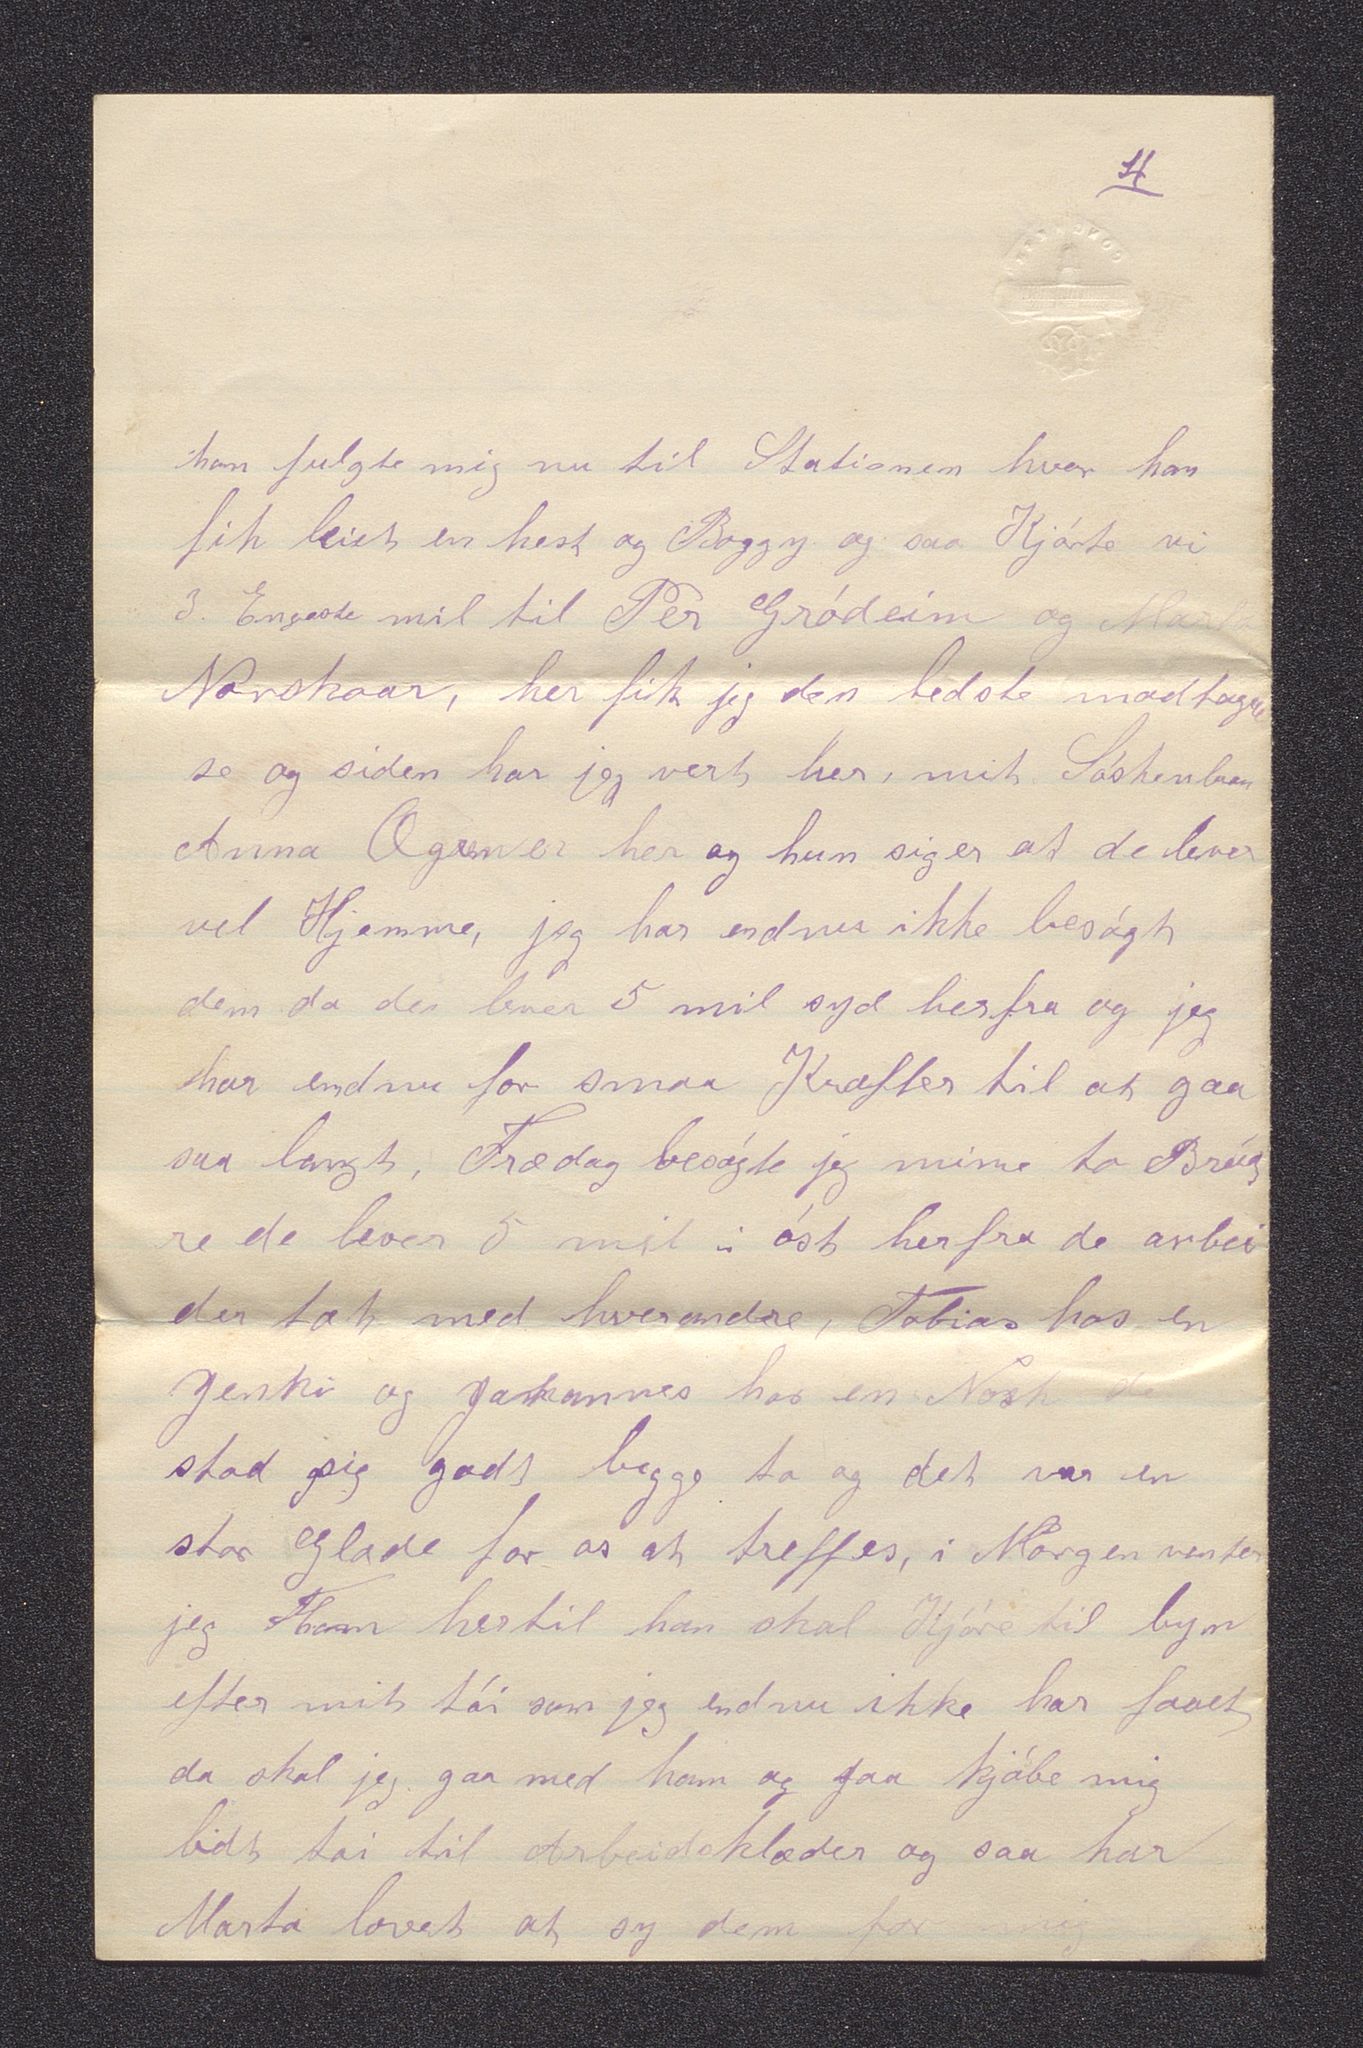 4
han fulgte mig nu til Stationen hvor han
fik leiet en hest og Boggy og saa Kjórte vi
3. Engeste mil til Per Gródeim og Marta
Norskaar, her fik jeg den bedste modtagel
se og siden har jeg vert her, mit Sóskenbaan
Anna Ogsaa er her og hun siger at de lever
vel Hjemme, jeg har endnu ikke besógt
dem da dei lever 5 mil syd herfra og jeg
har endnu for smaa Kræfter til at gaa
saa langt, Frædag besógte jeg mine to Brúd
re de lever 5 mil i óst herfra de arbei
der tæt med hverandre, Tobias hos en
Jenki og Johannes hos en Norsk de
stod sig godt begge to og det var en
stor Glæde for os at treffes, i Morgen venter
jeg Tham hertil han skal Kjóre til byn
efter mit tói som jeg endnu ikke har faaet
da skal jeg gaa med ham og faa kjóbe mig
lidt toi til Arbeidsklæder og saa har
Marta lovet at sy dem for mig